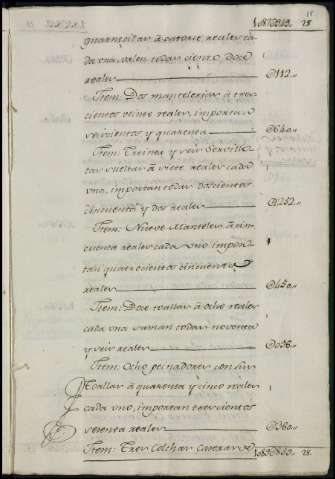 á catorce reales ca
da una, valen todas ciento, doce
reales D112..
Item: Dos mantelerias à tres
cientos veinte reales, importan
seiscientos y quarenta D640..
Item: Treinta y seis Serville
tas sueltas à siete reales cada
uno, importan todas doscientos
cincuenta y dos reales D252..
Item: Nueve Manteles à cin
cuenta reales cada uno impor
tan quatrocientos cincuenta
reales D450..
Item: Doce toallas à ocho reales
cada una suman todas noventa
y seis reales D096..
Item: Ocho peinadores con sus
toallas à quarenta y cinco reales
cada uno, importan trescientos
sesenta reales D360..
Item: Tres Colchas Caseras de